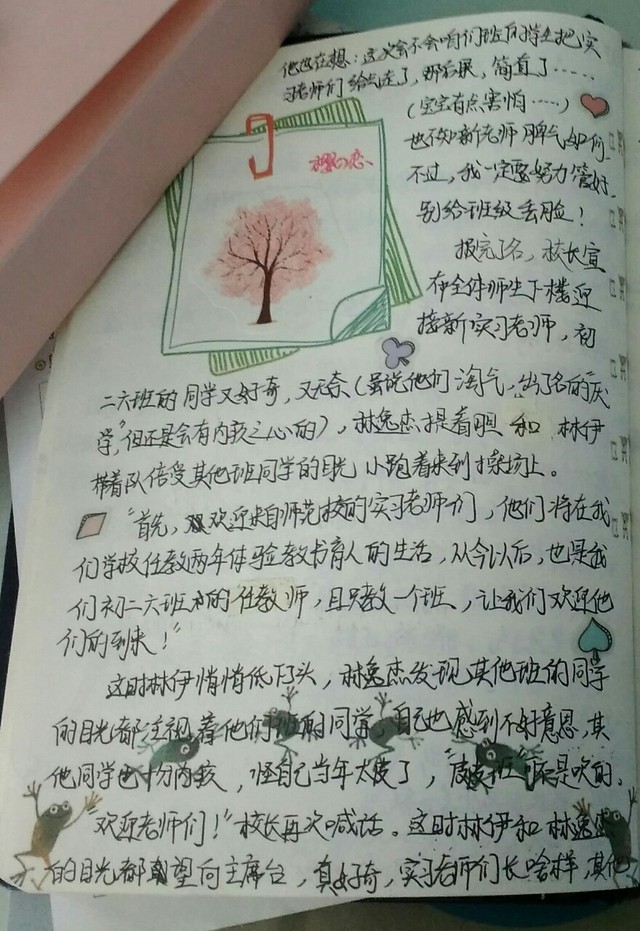 他也在想：这次会不会咱们班的学生把实
习老师们给气走了，那后果，简直了……
（宝宝有点害怕……）
樱の恋
也不知新老师脾气如何，
不过，我一定要努力管好，
别给班级丢脸！
报完了名，校长宣
布全体师生下楼迎
接新实习老师，初
二六班的同学又好奇，又无奈（虽说他们淘气，出了名的“厌
学”，但还是会有内疚之心的），林逸杰提着胆和林伊
带着队倍受其他班同学的目光小跑着来到操场上。
“首先，欢迎来自师范校的实习老师们，他们将在我
们学校任教两年体验教书育人的生活，从今以后，也是我
们初二六班的任教师，且只教一个班，让我们欢迎他
们的到来！”
这时林伊悄悄低下头，林逸杰发现其他班的同学
的目光都注视着他们班的同学，自己也感到不好意思，其
他同学也十分内疚，怪自己当年太皮了，“皮皮班”不是吹的。
“欢迎老师们！”校长再次喊话。这时林伊和林逸杰
的目光都望向主席台，真好奇，实习老师们长啥样，其他